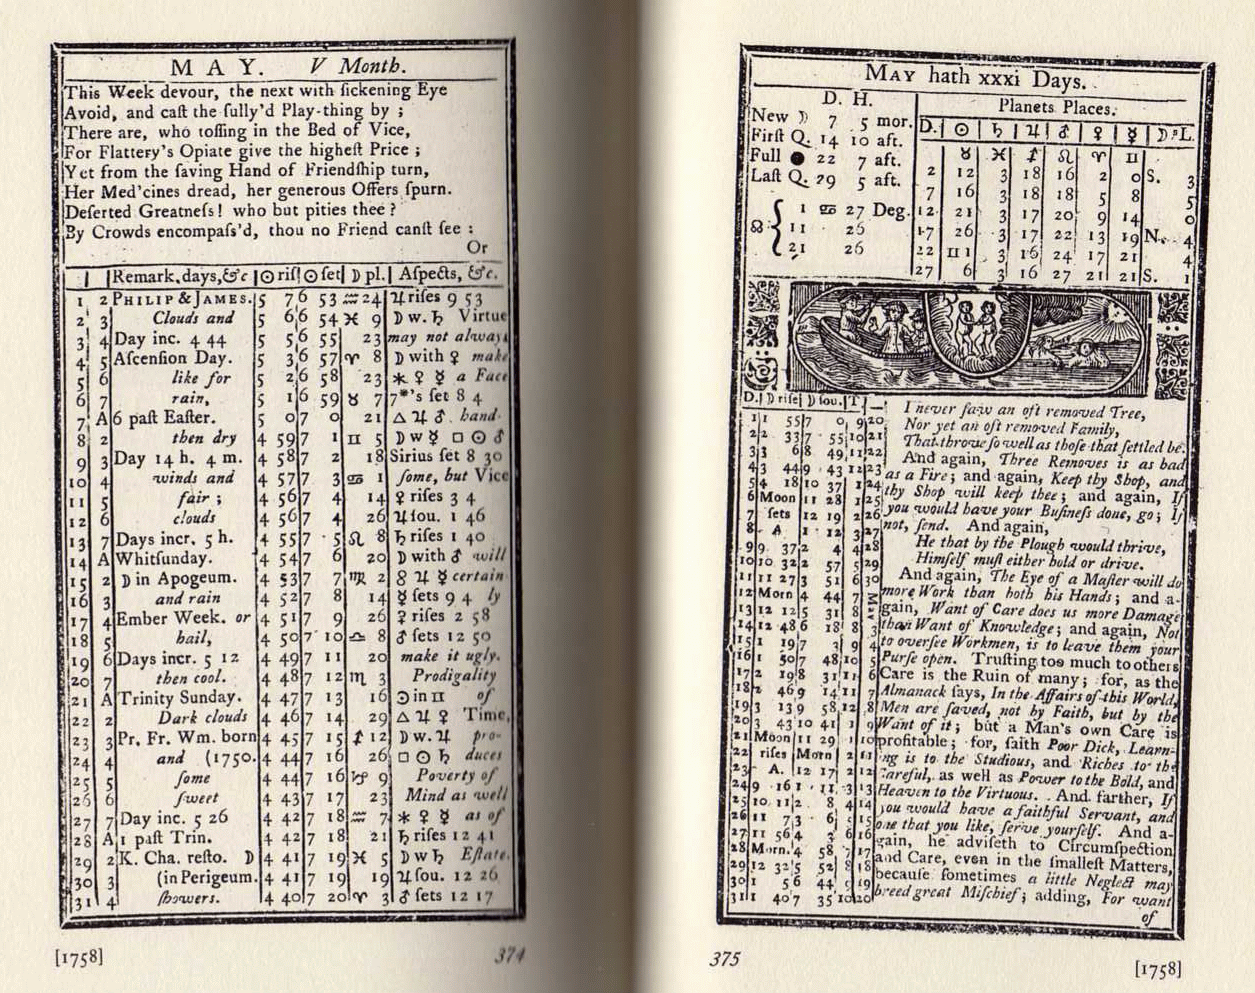 MAY. V Month.
This Week devour, the next with ſickening Eye
Avoid, and caſt the ſully'd Play-thing by ;
There are, who toſſing in the Bed of Vice,
For Flattery's Opiate give the higheſt Price ;
Yet from the ſaving Hand of Friendſhip turn,
Her Med'cines dread, her generous Offers ſpurn.
Deſerted Greatneſs! who but pities thee ?
By Crowds encompaſs'd, thou no Friend canſt ſee :
Or
Remark. days, &c | ☉ riſ | ☉ ſet | ☽ pl. | Aſpects, &c.
1 2 PHILIP & JAMES. 5 7 6 53 ♒ 24 ♃ riſes 9 53
2 3 Clouds and 5 6 6 54 ♓ 9 ☽ w. ♄ Virtue
3 4 Day inc. 4 44 5 5 6 55 23 may not always
4 5 Aſcenſion Day. 5 3 6 57 ♈ 8 ☽ with ♀ make
5 6 like for 5 2 6 58 23 ⚹ ♀ ☿ a Face
6 7 rain, 5 1 6 59 ♉ 7 7*'s ſet 8 4
7 A 6 paſt Eaſter. 5 0 7 0 21 △ ♃ ♂ hand-
8 2 then dry 4 59 7 1 ♊ 5 ☽ w ☿ □ ☉ ♂
9 3 Day 14 h. 4 m. 4 58 7 2 18 Sirius ſet 8 30
10 4 winds and 4 57 7 3 ♋ 1 ſome, but Vice
11 5 fair ; 4 56 7 4 14 ♀ riſes 3 4
12 6 clouds 4 56 7 4 26 ♃ ſou. 1 46
13 7 Days incr. 5 h. 4 55 7 5 ♌ 8 ♄ riſes 1 40
14 A Whitſunday. 4 54 7 6 20 ☽ with ♂ will
15 2 ☽ in Apogeum. 4 53 7 7 ♍ 2 ☍ ♃ ☿ certain
16 3 and rain 4 52 7 8 14 ☿ ſets 9 4 ly
17 4 Ember Week. or 4 51 7 9 26 ♀ riſes 2 58
18 5 hail, 4 50 7 10 ♎ 8 ♂ ſets 12 50
19 6 Days incr. 5 12 4 49 7 11 20 make it ugly.
20 7 then cool. 4 48 7 12 ♏ 3 Prodigality
21 A Trinity Sunday. 4 47 7 13 16 ☉ in ♊ of
22 2 Dark clouds 4 46 7 14 29 △ ♃ ♀ Time,
23 3 Pr. Fr. Wm. born 4 45 7 15 ♐ 12 ☽ w. ♃ pro-
24 4 and (1750. 4 44 7 16 26 □ ☉ ♄ duces
25 5 ſome 4 44 7 16 ♑ 9 Poverty of
26 6 ſweet 4 43 7 17 23 Mind as well
27 7 Day inc. 5 26 4 42 7 18 ♒ 7 ⚹ ♀ ☿ as of
28 A 1 paſt Trin. 4 42 7 18 21 ♄ riſes 12 41
29 2 K. Cha. reſto. ☽ 4 41 7 19 ♓ 5 ☽ w ♄ Eſtate.
30 3 (in Perigeum. 4 41 7 19 19 ♃ ſou. 12 26
31 4 ſhowers. 4 40 7 20 ♈ 3 ♂ ſets 12 17
[1758] 374
MAY hath xxxi Days.
D. H.
New ☽ 7 5 mor.
Firſt Q. 14 10 aft.
Full ● 22 7 aft.
Laſt Q. 29 5 aft.
☊ { 1 ♋ 27 Deg.
11 26
21 26
Planets Places.
D. | ☉ | ♄ | ♃ | ♂ | ♀ | ☿ | ☽'s L.
♉ ♓ ♐ ♌ ♈ ♊
2 12 3 18 16 2 0 S. 3
7 16 3 18 18 5 8 5
12 21 3 17 20 9 14 0
17 26 3 17 22 13 19 N. 4
22 ♊ 1 3 16 24 17 21 4
27 6 3 16 27 21 21 S. 1
D. | ☽ riſe | ☽ ſou. | T
1 1 55 7 0 9 20
2 2 33 7 55 10 21
3 3 6 8 49 11 22
4 3 44 9 43 12 23
5 4 18 10 37 1 24
6 Moon 11 28 1 25
7 ſets 12 19 2 26
8 A 1 12 3 27
9 9 37 2 4 4 28
10 10 32 2 57 5 29
11 11 27 3 51 6 30
12 Morn 4 44 7 May
13 12 12 5 31 8
14 12 48 6 18 8 3
15 1 19 7 3 9 4
16 1 50 7 48 10 5
17 2 19 8 31 11 6
18 2 46 9 14 11 7
19 3 13 9 58 12 8
20 3 43 10 41 1 9
21 Moon 11 29 1 10
22 riſes Morn 2 11
23 A. 12 17 2 12
24 9 16 1 11 3 13
25 10 11 2 8 4 14
26 11 7 3 6 5 15
27 11 56 4 2 6 16
28 Morn. 4 58 7 17
29 12 32 5 52 8 18
30 1 5 6 44 9 19
31 1 40 7 35 10 20
I never ſaw an oft removed Tree,
Nor yet an oft removed Family,
That throve ſo well as thoſe that ſettled be.
And again, Three Removes is as bad
as a Fire; and again, Keep thy Shop, and
thy Shop will keep thee; and again, If
you would have your Buſineſs done, go; If
not, ſend. And again,
He that by the Plough would thrive,
Himſelf muſt either hold or drive.
And again, The Eye of a Maſter will do
more Work than both his Hands; and a-
gain, Want of Care does us more Damage
than Want of Knowledge; and again, Not
to overſee Workmen, is to leave them your
Purſe open. Truſting too much to others
Care is the Ruin of many; for, as the
Almanack ſays, In the Affairs of this World,
Men are ſaved, not by Faith, but by the
Want of it; but a Man's own Care is
profitable; for, ſaith Poor Dick, Learn-
ing is to the Studious, and Riches to the
Careful, as well as Power to the Bold, and
Heaven to the Virtuous. And farther, If
you would have a faithful Servant, and
one that you like, ſerve yourſelf. And a-
gain, he adviſeth to Circumſpection
and Care, even in the ſmalleſt Matters,
becauſe ſometimes a little Neglect may
breed great Miſchief; adding, For want
of
375 [1758]